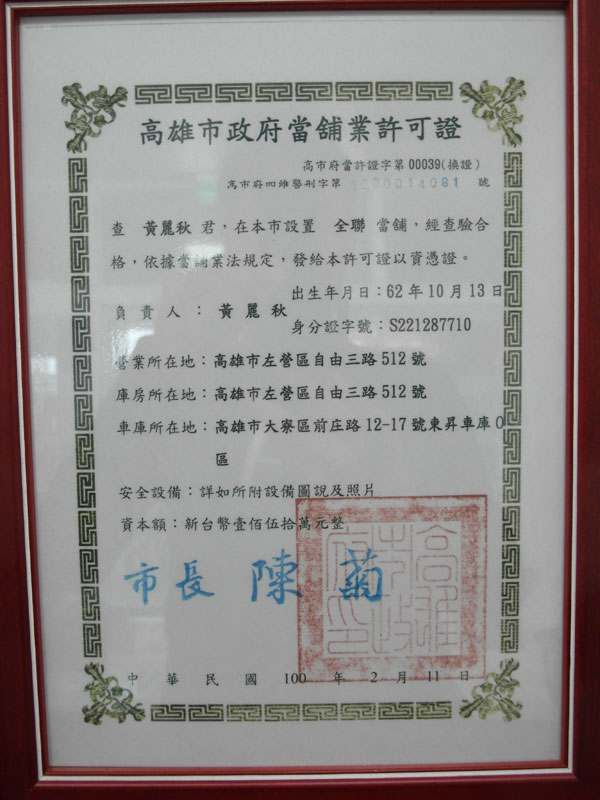 高雄市政府當舖業許可證
高市府當許證字第 00039(換證)
高市府四維警刑字第 1000014081 號
查 黃麗秋 君，在本市設置 全聯 當舖，經查驗合
格，依據當舖業法規定，發給本許可證以資憑證。
出生年月日：62 年 10 月 13 日
負責人：黃麗秋
身分證字號：S221287710
營業所在地：高雄市左營區自由三路 512 號
庫房所在地：高雄市左營區自由三路 512 號
車庫所在地：高雄市大寮區前庄路 12-17 號東昇車庫 O
區
安全設備：詳如所附設備圖說及照片
資本額：新台幣壹佰伍拾萬元整
市長 陳菊
高雄市政府印
中華民國 100 年 2 月 11 日